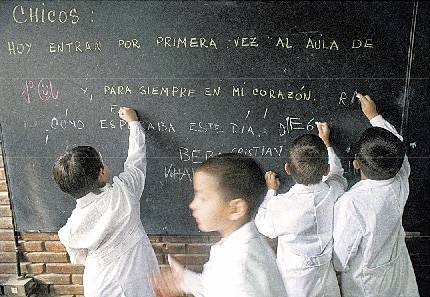 CHICOS:
HOY ENTRAN POR PRIMERA VEZ AL AULA DE
1º Y, PARA SIEMPRE EN MI CORAZÓN.
¡CÓMO ESPERABA ESTE DÍA
CRISTIAN